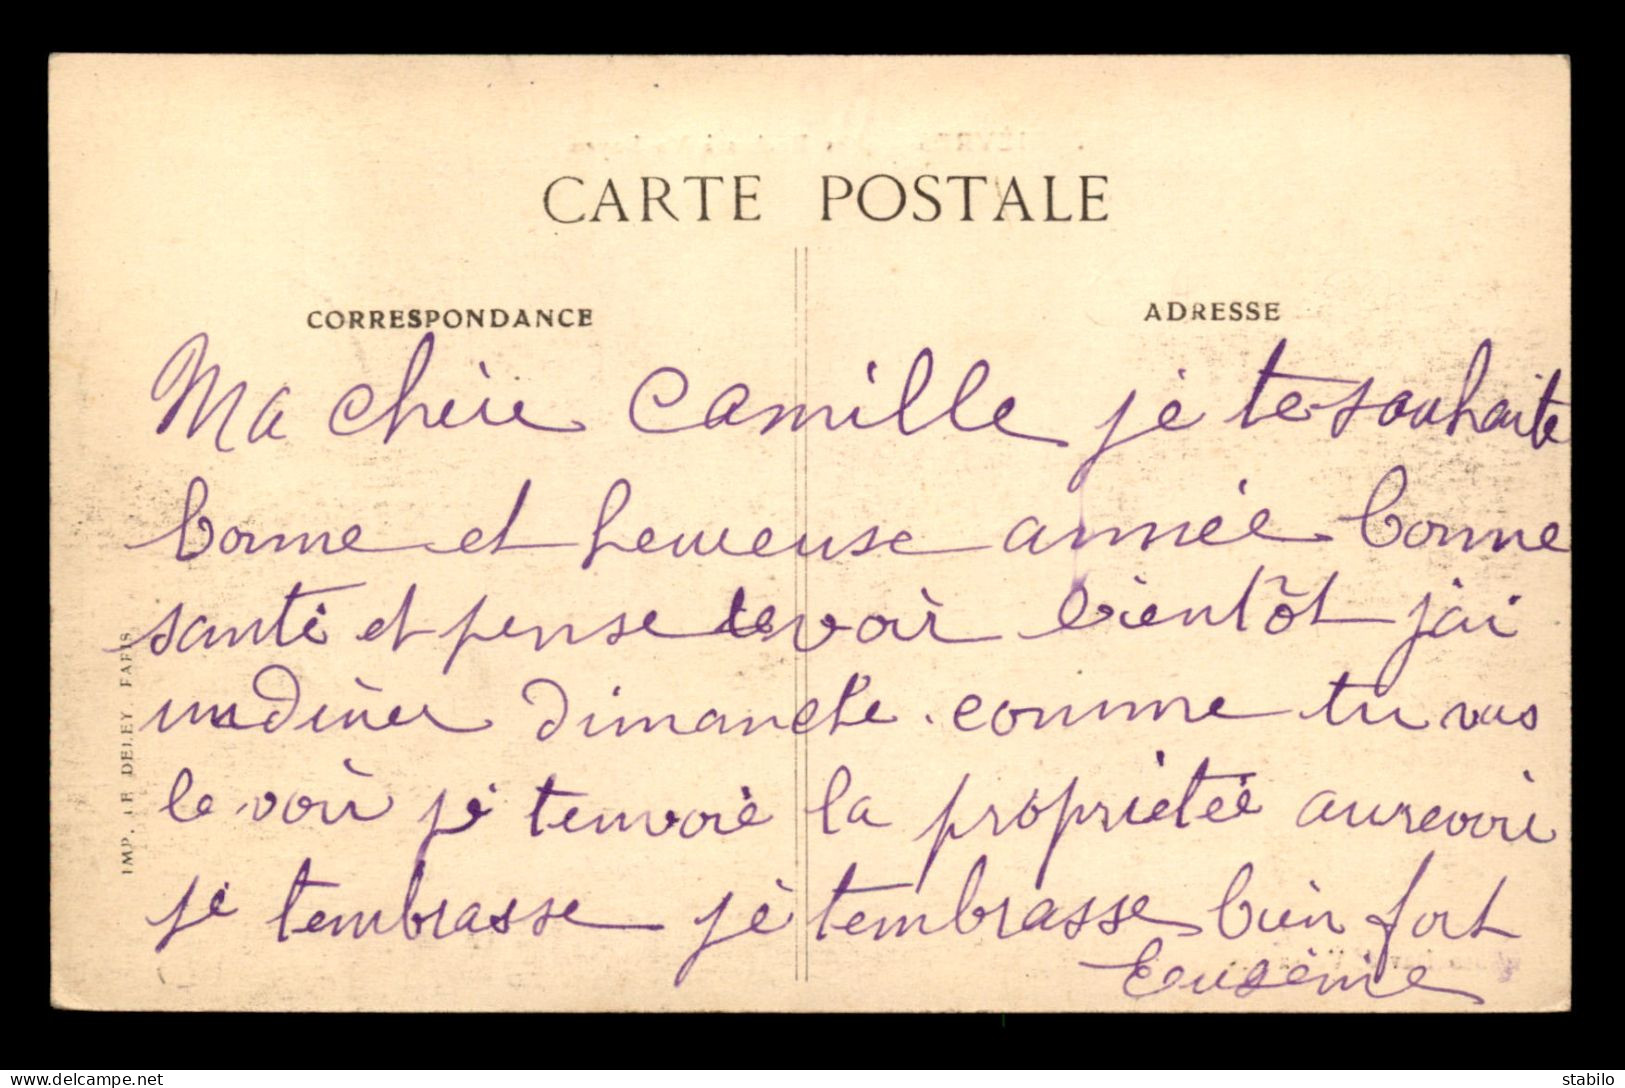 CARTE POSTALE
CORRESPONDANCE
ADRESSE
Ma chère Camille je te souhaite
bonne et heureuse année bonne
santé et pense te voir bientôt j'ai
un diner dimanche comme tu vas
le voir je tenvoie la propriétée aurevoir
je tembrasse je tembrasse bien fort
Eugénie
IMP. LE DELEY, PARIS
delcampe.net
stabilo